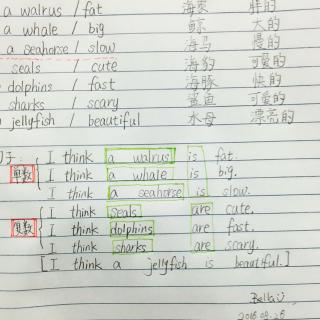 a walrus / fat 海象 胖的
a whale / big 鲸 大的
a seahorse / slow 海马 慢的
seals / cute 海豹 可爱的
dolphins / fast 海豚 快的
sharks / scary 鲨鱼 可爱的
jellyfish / beautiful 水母 漂亮的
子:
单数
I think a walrus is fat.
I think a whale is big.
I think a seahorse is slow.
复数
I think seals are cute.
I think dolphins are fast.
I think sharks are scary.
[I think a jellyfish is beautiful.]
Bella
2016.09.28